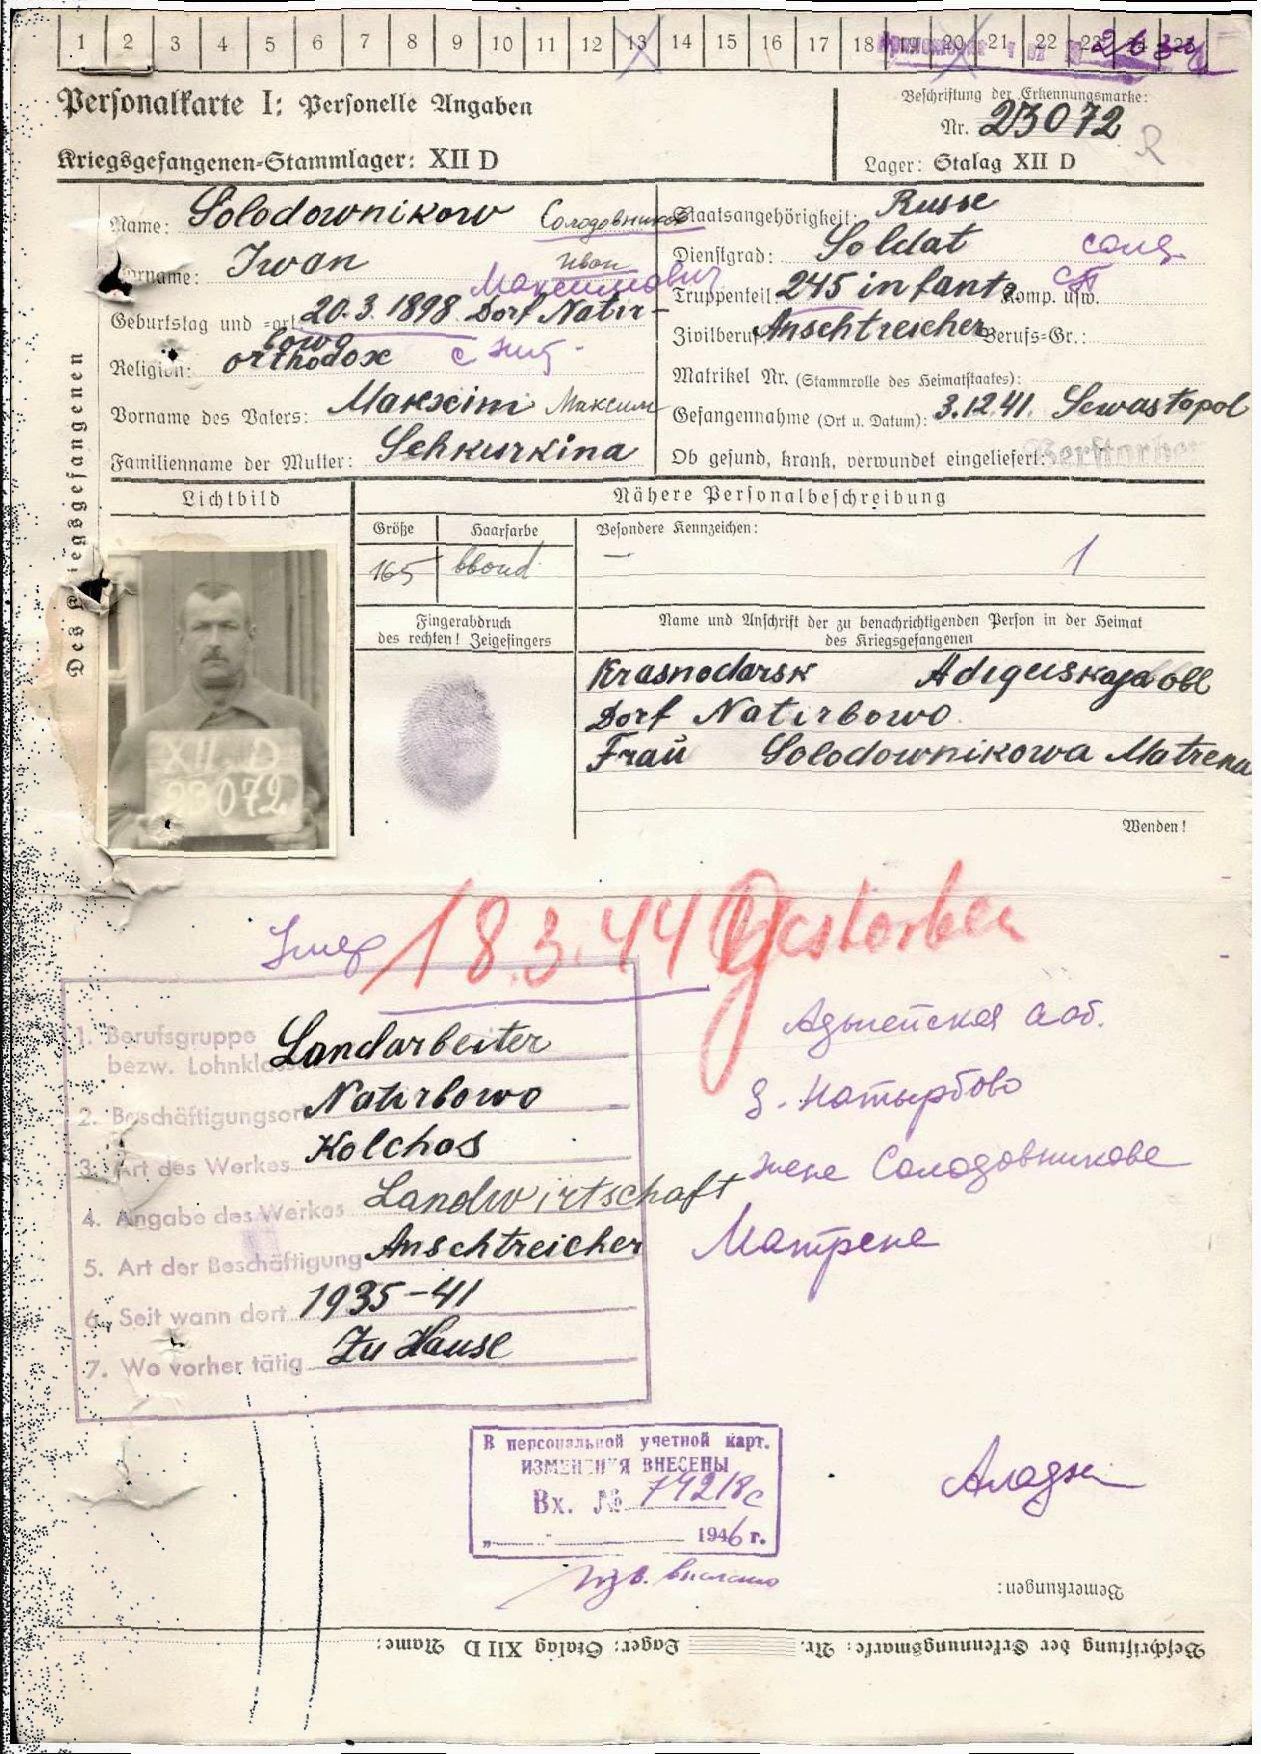 1 2 3 4 5 6 7 8 9 10 11 12 13 14 15 16 17 18 19 20 21 22 23
Personalkarte I: Personelle Angaben
Kriegsgefangenen-Stammlager: XII D
Beschriftung der Erkennungsmarke:
Nr. 23072
Lager: Stalag XII D
Des Kriegsgefangenen
Name: Solodownikow Солодовников
Vorname: Iwan Иван
Максимович
Geburtstag und -ort: 20.3.1898 Dorf Natir-
bowo
Religion: orthodox
Vorname des Vaters: Maxim Максим
Familienname der Mutter: Schkurkina
Staatsangehörigkeit: Russe
Dienstgrad: Soldat солд.
Truppenteil: 245 infant. Komp. usw. сп
Zivilberuf: Anschtreicher Berufs-Gr.:
Matrikel Nr. (Stammrolle des Heimatstaates):
Gefangennahme (Ort u. Datum): 3.12.41. Sewastopol
Ob gesund, krank, verwundet eingeliefert:
Verstorben
Lichtbild
Nähere Personalbeschreibung
Größe Haarfarbe Besondere Kennzeichen:
165 blond —
Fingerabdruck
des rechten! Zeigefingers
Name und Anschrift der zu benachrichtigenden Person in der Heimat
des Kriegsgefangenen
Krasnodarsk Adigeiskaja obl
Dorf Natirbowo
Frau Solodownikowa Matrena
Wenden!
XII D
23072
Умер 18.3.44 Gestorben
1. Berufsgruppe
bezw. Lohnklasse Landarbeiter
2. Beschäftigungsort Natirbowo
3. Art des Werkes Kolchos
4. Angabe des Werkes Landwirtschaft
5. Art der Beschäftigung Anschtreicher
6. Seit wann dort 1935-41
7. Wo vorher tätig Zu Hause
Адыгейская аоб.
д. Натырбово
жене Солодовникове
Матрене
В персональной учетной карт.
ИЗМЕНЕНИЯ ВНЕСЕНЫ
Вх. № 74218с
1946 г.
Изв. выслано
Bemerkungen:
Beschriftung der Erkennungsmarke: Nr. Lager: Stalag XII D Name: